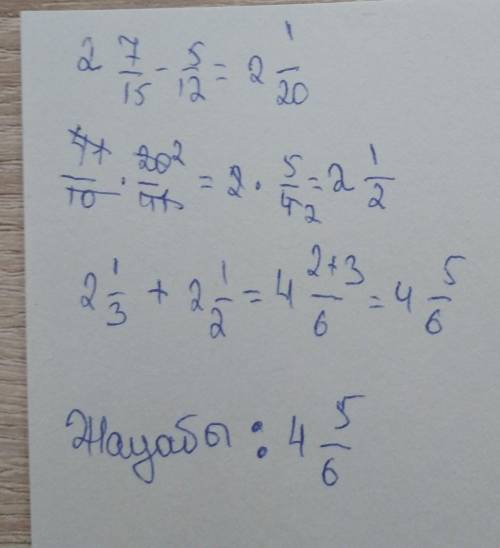 2 7/15 - 5/12 = 2 1/20
41/10 · 20²/41 = 2 · 5/4₂ = 2 1/2
2 1/3 + 2 1/2 = 4 2+3/6 = 4 5/6
Жауабы : 4 5/6